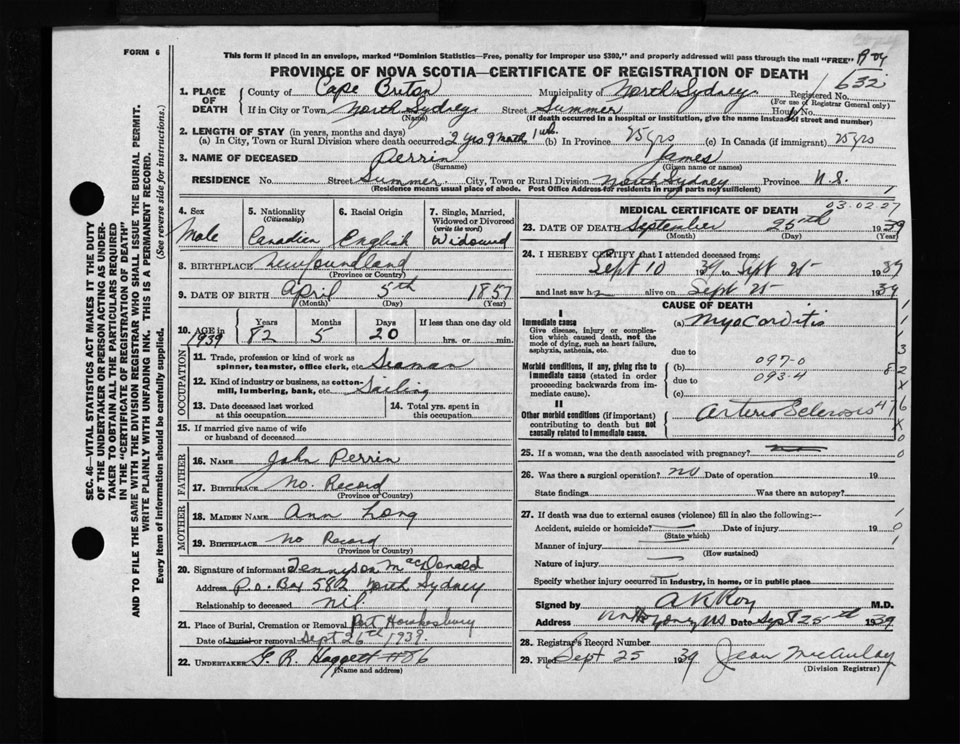 FORM 6
This form if placed in an envelope, marked "Dominion Statistics—Free, penalty for improper use $300," and properly addressed will pass through the mail "FREE"
PROVINCE OF NOVA SCOTIA—CERTIFICATE OF REGISTRATION OF DEATH
1. PLACE OF DEATH
County of Cape Breton Municipality of North Sydney Registered No. 632
(For use of Registrar General only)
If in City or Town North Sydney Street Summer House No.
(Name) (If death occurred in a hospital or institution, give the name instead of street and number)
2. LENGTH OF STAY (in years, months and days)
(a) In City, Town or Rural Division where death occurred 2 yrs 9 Month 1 wk. (b) In Province 25 yrs (c) In Canada (if immigrant) 25 yrs
3. NAME OF DECEASED Perrin James
(Surname) (Given name or names)
RESIDENCE No. Street Summer City, Town or Rural Division North Sydney Province N.S.
(Residence means usual place of abode. Post Office Address for residents in rural parts not sufficient)
4. Sex Male
5. Nationality (Citizenship) Canadian
6. Racial Origin English
7. Single, Married, Widowed or Divorced (write the word) Widowed
8. BIRTHPLACE Newfoundland
(Province or Country)
9. DATE OF BIRTH April 5th 1857
(Month) (Day) (Year)
10. AGE in 1939 Years 82 Months 5 Days 20 If less than one day old hrs. or min.
OCCUPATION
11. Trade, profession or kind of work as spinner, teamster, office clerk, etc. Seaman
12. Kind of industry or business, as cotton-mill, lumbering, bank, etc. Sailing
13. Date deceased last worked at this occupation
14. Total yrs. spent in this occupation
15. If married give name of wife or husband of deceased
FATHER
16. NAME John Perrin
17. BIRTHPLACE No. Record
(Province or Country)
MOTHER
18. MAIDEN NAME Ann Long
19. BIRTHPLACE No Record
(Province or Country)
20. Signature of informant Tennyson MacDonald
Address P.O. Box 582 North Sydney
Relationship to deceased nil
21. Place of Burial, Cremation or Removal Port Hawkesbury
Date of burial or removal Sept 26th 1939
22. UNDERTAKER G. R. Haggett #86
(Name and address)
03.02.27
MEDICAL CERTIFICATE OF DEATH
23. DATE OF DEATH September 25th 1939
(Month) (Day) (Year)
24. I HEREBY CERTIFY that I attended deceased from:
Sept 10 1939 to Sept 25 1939
and last saw h alive on Sept 25 1939
CAUSE OF DEATH
I
Immediate cause
Give disease, injury or complication which caused death, not the mode of dying, such as heart failure, asphyxia, asthenia, etc.
(a) Myocarditis
due to
Morbid conditions, if any, giving rise to immediate cause (stated in order proceeding backwards from immediate cause).
(b) 097-0
due to 093-4
(c)
II
Other morbid conditions (if important) contributing to death but not causally related to immediate cause.
Arterio Sclerosis
25. If a woman, was the death associated with pregnancy?
26. Was there a surgical operation? no Date of operation 19
State findings Was there an autopsy?
27. If death was due to external causes (violence) fill in also the following:—
Accident, suicide or homicide? Date of injury 19
(State which)
Manner of injury
(How sustained)
Nature of injury
Specify whether injury occurred in industry, in home, or in public place
Signed by A K Roy M.D.
Address North Sydney NS Date Sept 25th 1939
28. Registrar's Record Number
29. Filed Sept 25 1939 Jean McAulay
(Division Registrar)
SEC. 46—VITAL STATISTICS ACT MAKES IT THE DUTY
OF THE UNDERTAKER OR PERSON ACTING AS UNDER-
TAKER TO OBTAIN ALL THE PARTICULARS REQUIRED
IN THE "CERTIFICATE OF REGISTRATION OF DEATH"
AND TO FILE THE SAME WITH THE DIVISION REGISTRAR WHO SHALL ISSUE THE BURIAL PERMIT.
WRITE PLAINLY WITH UNFADING INK. THIS IS A PERMANENT RECORD.
Every item of information should be carefully supplied. (See reverse side for instructions.)